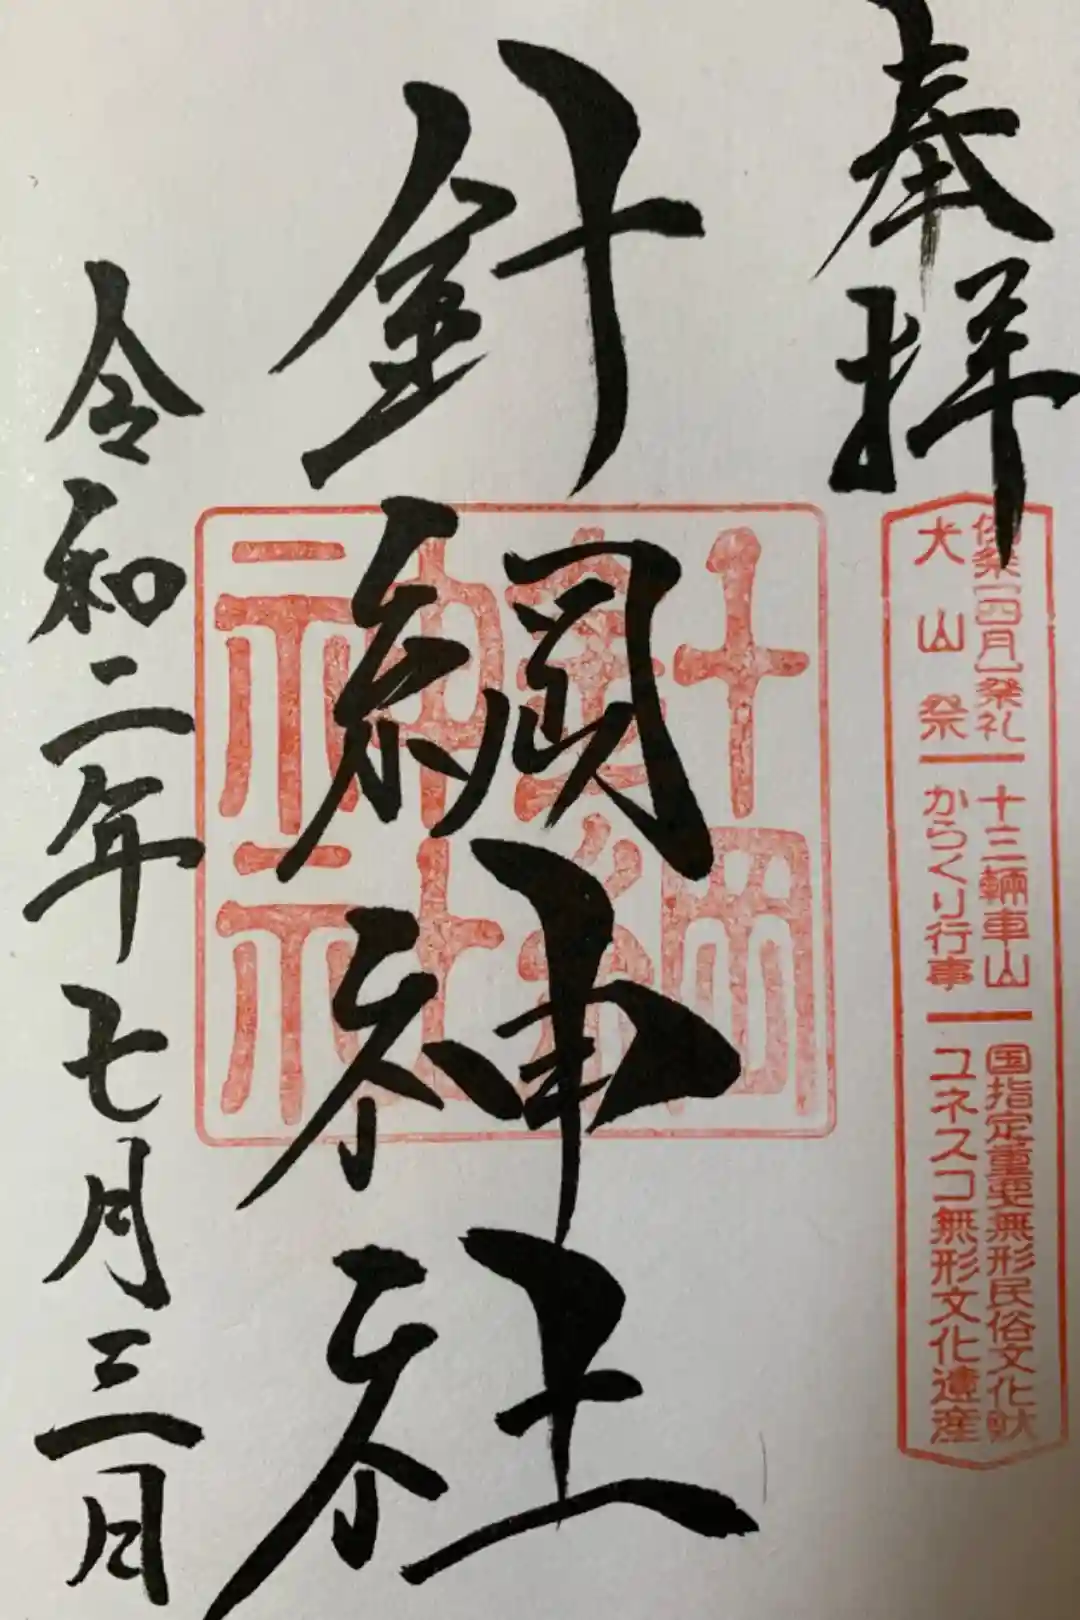 奉拝
例祭【四月】祭礼 十三輛車山 国指定重要無形民俗文化財
犬山祭 からくり行事 ユネスコ無形文化遺産
針綱神社
針綱神社
令和二年七月三日